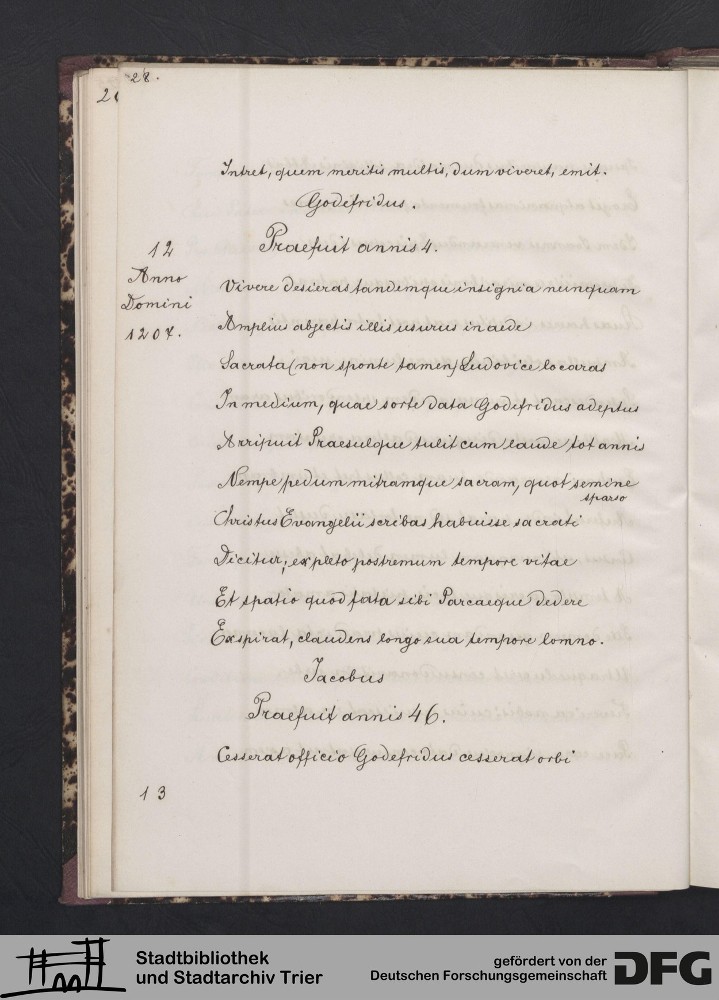 28.
2
Intret, quem meritis multis, dum viveret, emit.
Godefridus.
12
Praefuit annis 4.
Anno
Domini
1207.
Vivere desieras tandemque insignia nunquam
Amplius abjectis illis usurus in aede
Sacrata (non sponte tamen) Ludovice locaras
In medium, quae sorte data Godefridus adeptus
Arripuit Praesulque tulit cum laude tot annis
Nempe pedum mitramque sacram, quot semine
sparso
Christus Evangelii scribas habuisse sacrati
Dicitur; expleto postremum tempore vitae
Et spatio quod fata sibi Parcaeque dedere
Exspirat, claudens longo sua tempore lomno.
Jacobus
Praefuit annis 46.
Cesserat officio Godefridus cesserat orbi
13
Stadtbibliothek
und Stadtarchiv Trier
gefördert von der
Deutschen Forschungsgemeinschaft
DFG